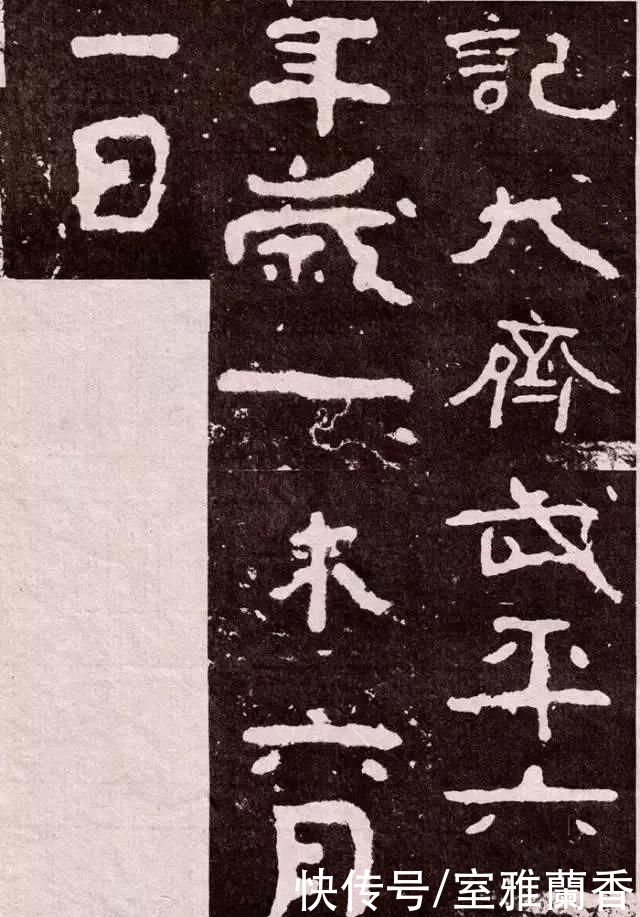 記大齊武平六
年歲乙未六月
一日
快传号/室雅蘭香